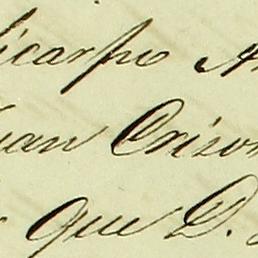 licarpo A
uan Crison
que D.